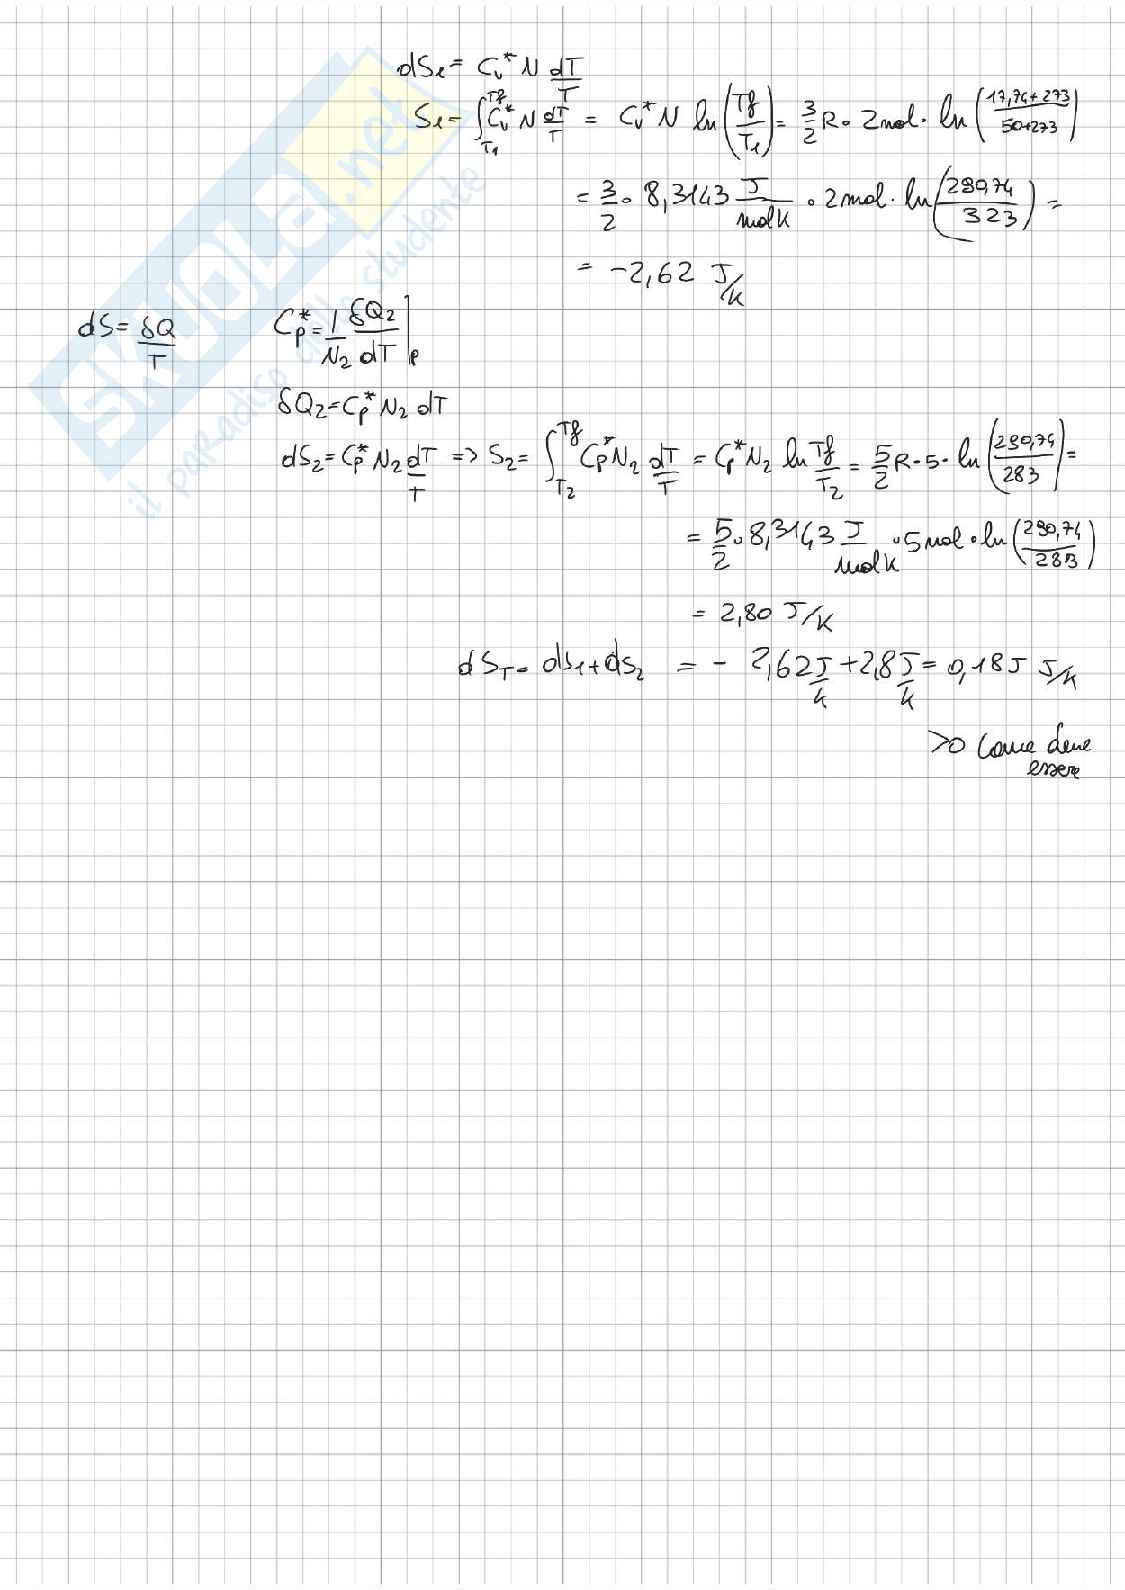 dS₁ = Cv* N dT/T
S₁ = ∫_{T₁}^{Tf} Cv* N dT/T = Cv* N ln(Tf/T₁) = 3/2 R · 2mol · ln((17,74+273)/(50+273))
= 3/2 · 8,3143 J/molK · 2mol · ln(290,74/323) =
= -2,62 J/K
dS = δQ/T Cp* = 1/N₂ δQ₂/dT|p
δQ₂ = Cp* N₂ dT
dS₂ = Cp* N₂ dT/T => S₂ = ∫_{T₂}^{Tf} Cp* N₂ dT/T = Cp* N₂ ln Tf/T₂ = 5/2 R · 5 · ln(290,74/283) =
= 5/2 · 8,3143 J/molK · 5mol · ln(290,74/283)
= 2,80 J/K
dS_T = dS₁ + dS₂ = - 2,62 J/K + 2,8 J/K = 0,18 J J/K
>0 come deve
essere
SKUOLA.net
il paradiso dello studente